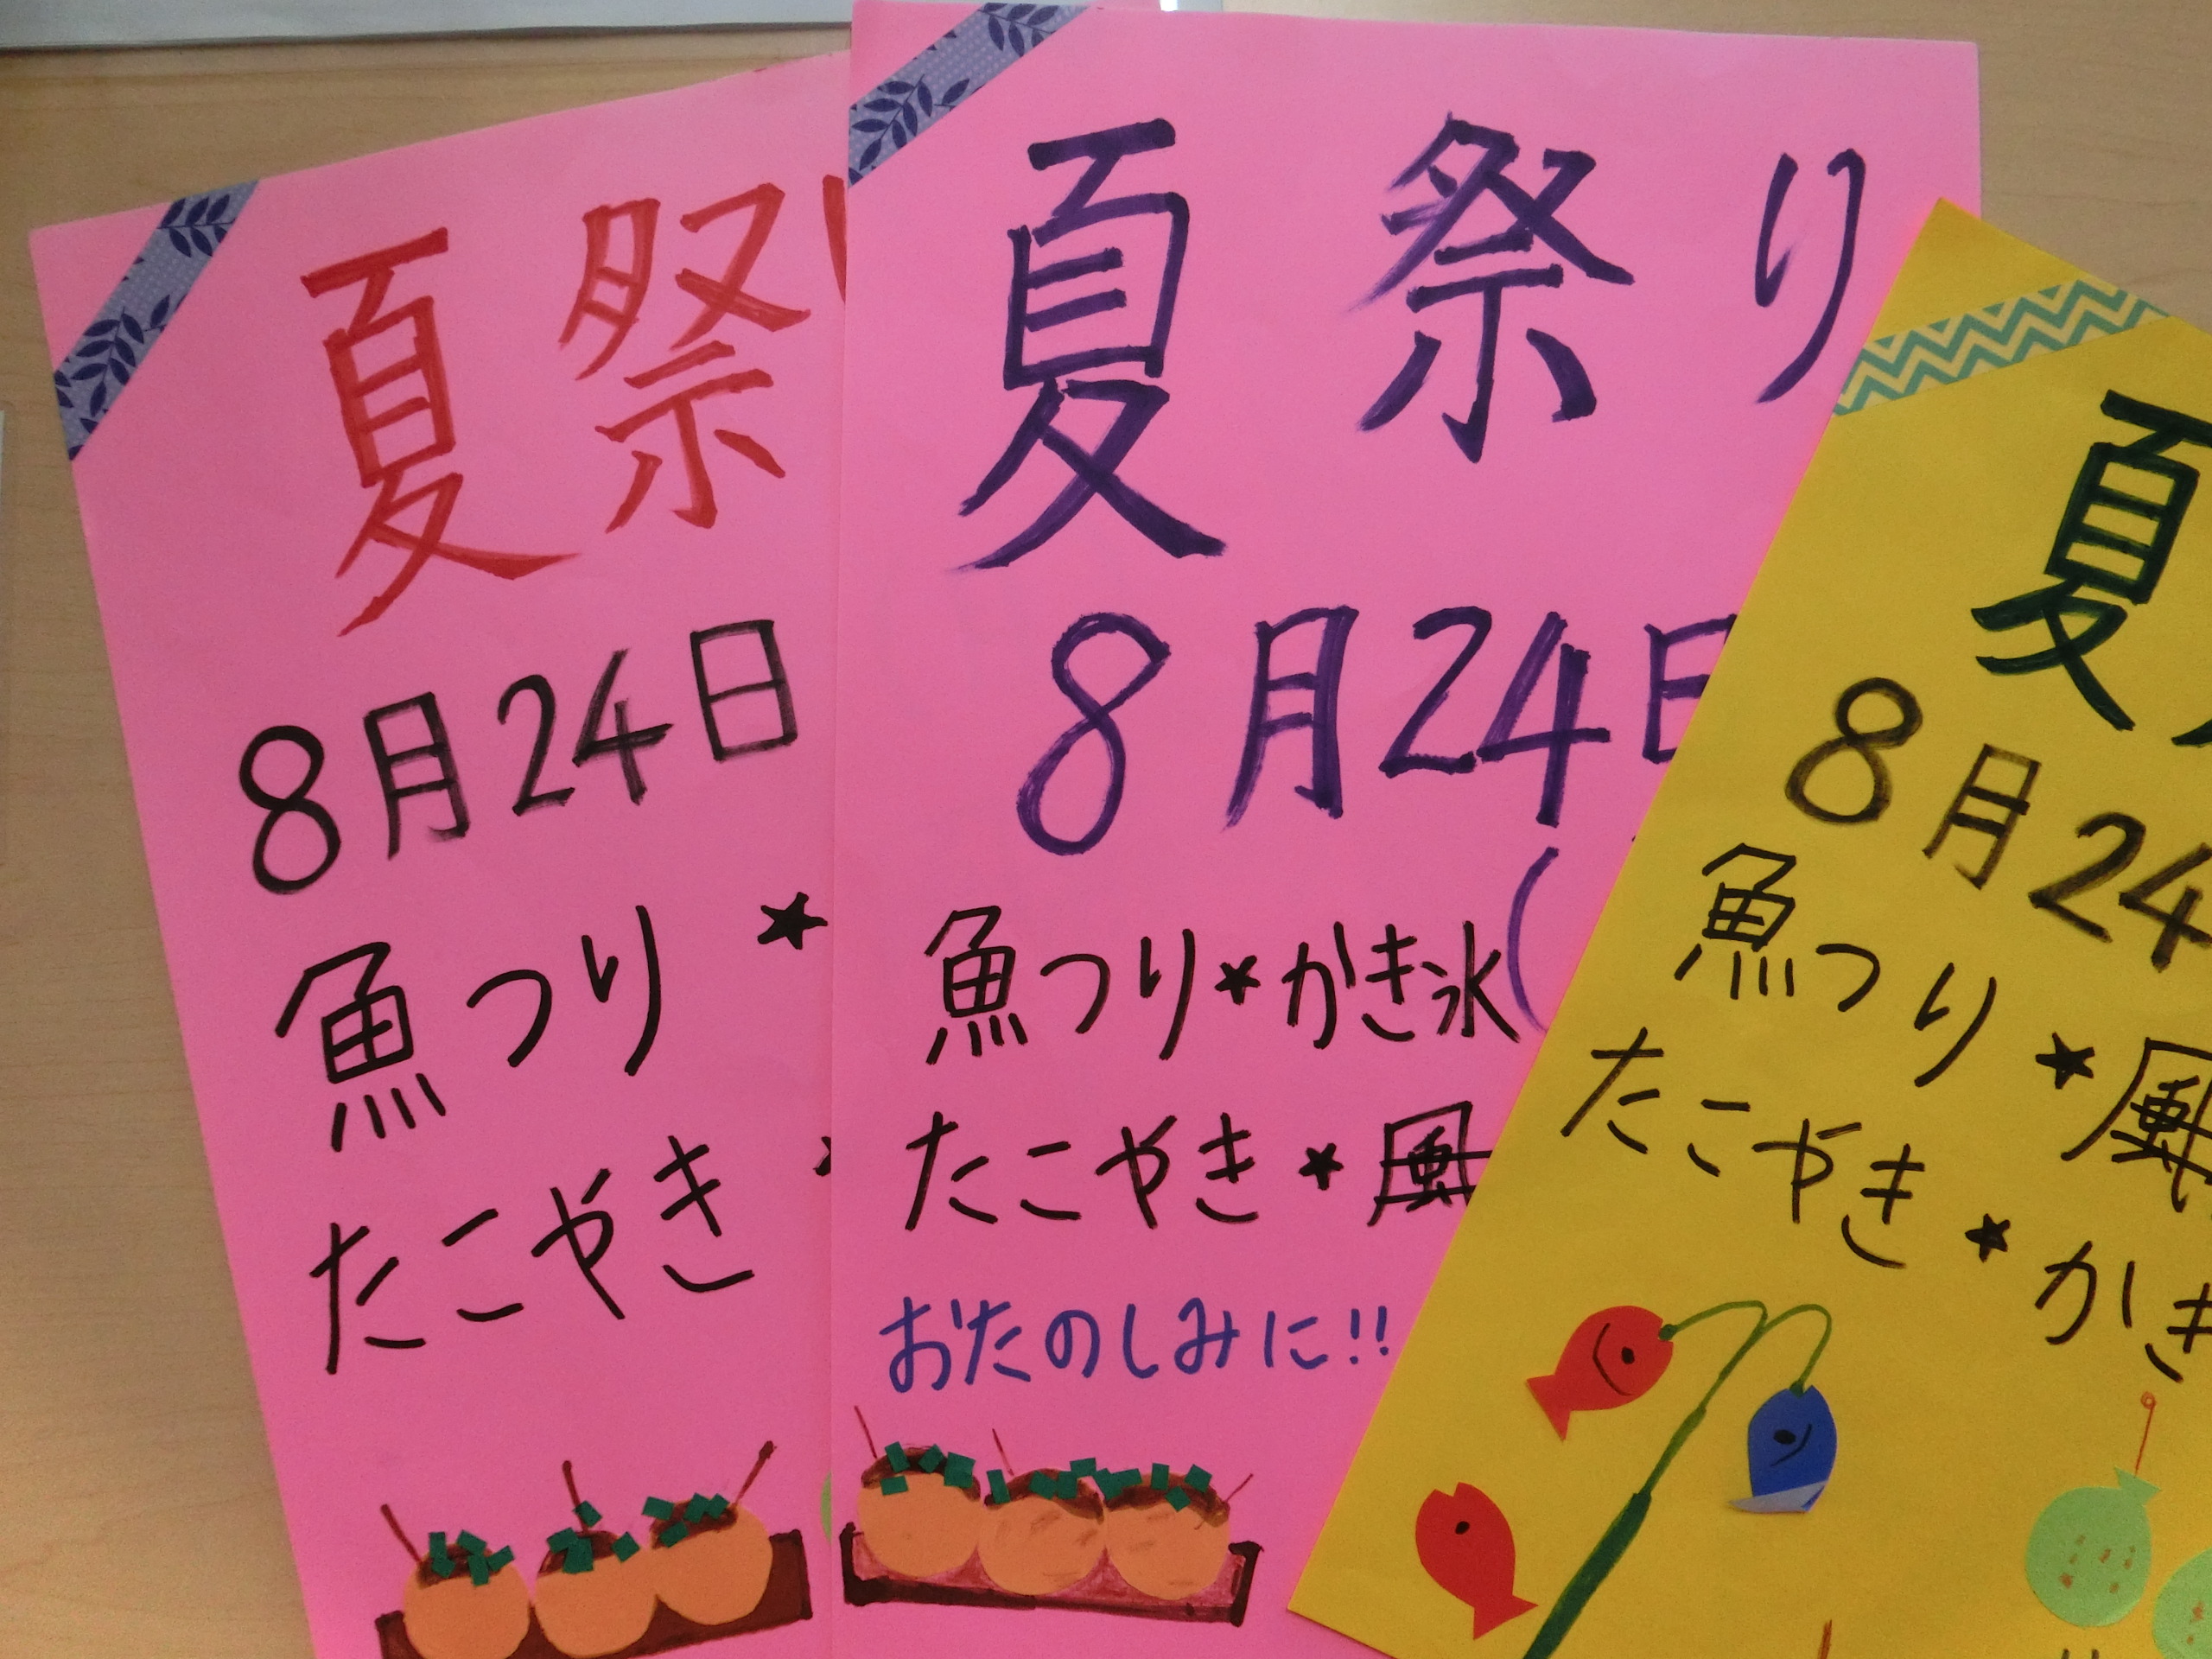 夏祭り
8月24日
魚つり★
たこやき
夏祭り
8月24日
(
魚つり★かき氷
たこやき★風
おたのしみに!!
夏
8月24
魚つり★風
たこやき★かき